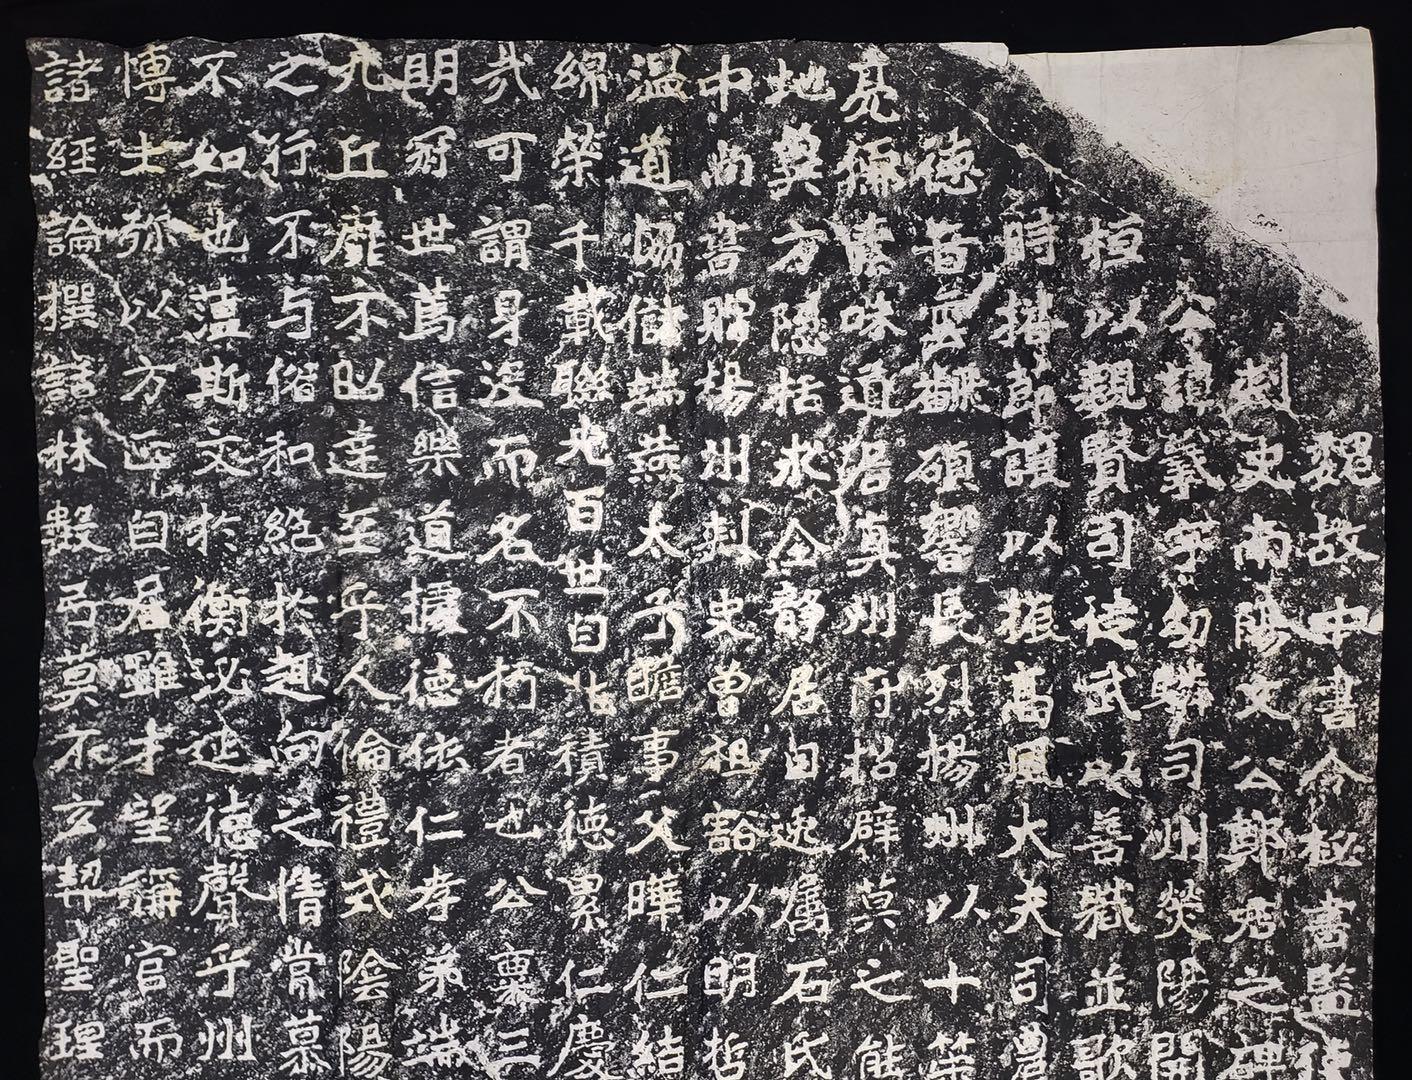 魏故中書令秘書監使
刺史南陽文公鄭君之碑
公諱羲字幼驎司州熒陽開
桓以親賢司徒武以善職並歌
時播節讓以振高風大夫司農
德音雲翻碩響長烈揚州以十策
亮儒素味道居真州府招辟莫之能
地冀方隱括求全靜居自逸屬石氏
中尚書贈楊州刾史曾祖豁以明哲
溫道協儲端燕太子瞻事父曄仁結
綿榮千載聯光百世自非積德累仁慶
哉可謂身沒而名不朽者也公稟三
明冠世篤信樂道據德依仁孝弟端
九丘靡不昭達至乎人倫禮式陰陽
之行不与俗和絕於趣向之情常慕
不如也蘊斯文於衡泌延德聲乎州
博士弥以方正自居雖才望稱官而
諸經論撰話林數弓莫不玄契聖理